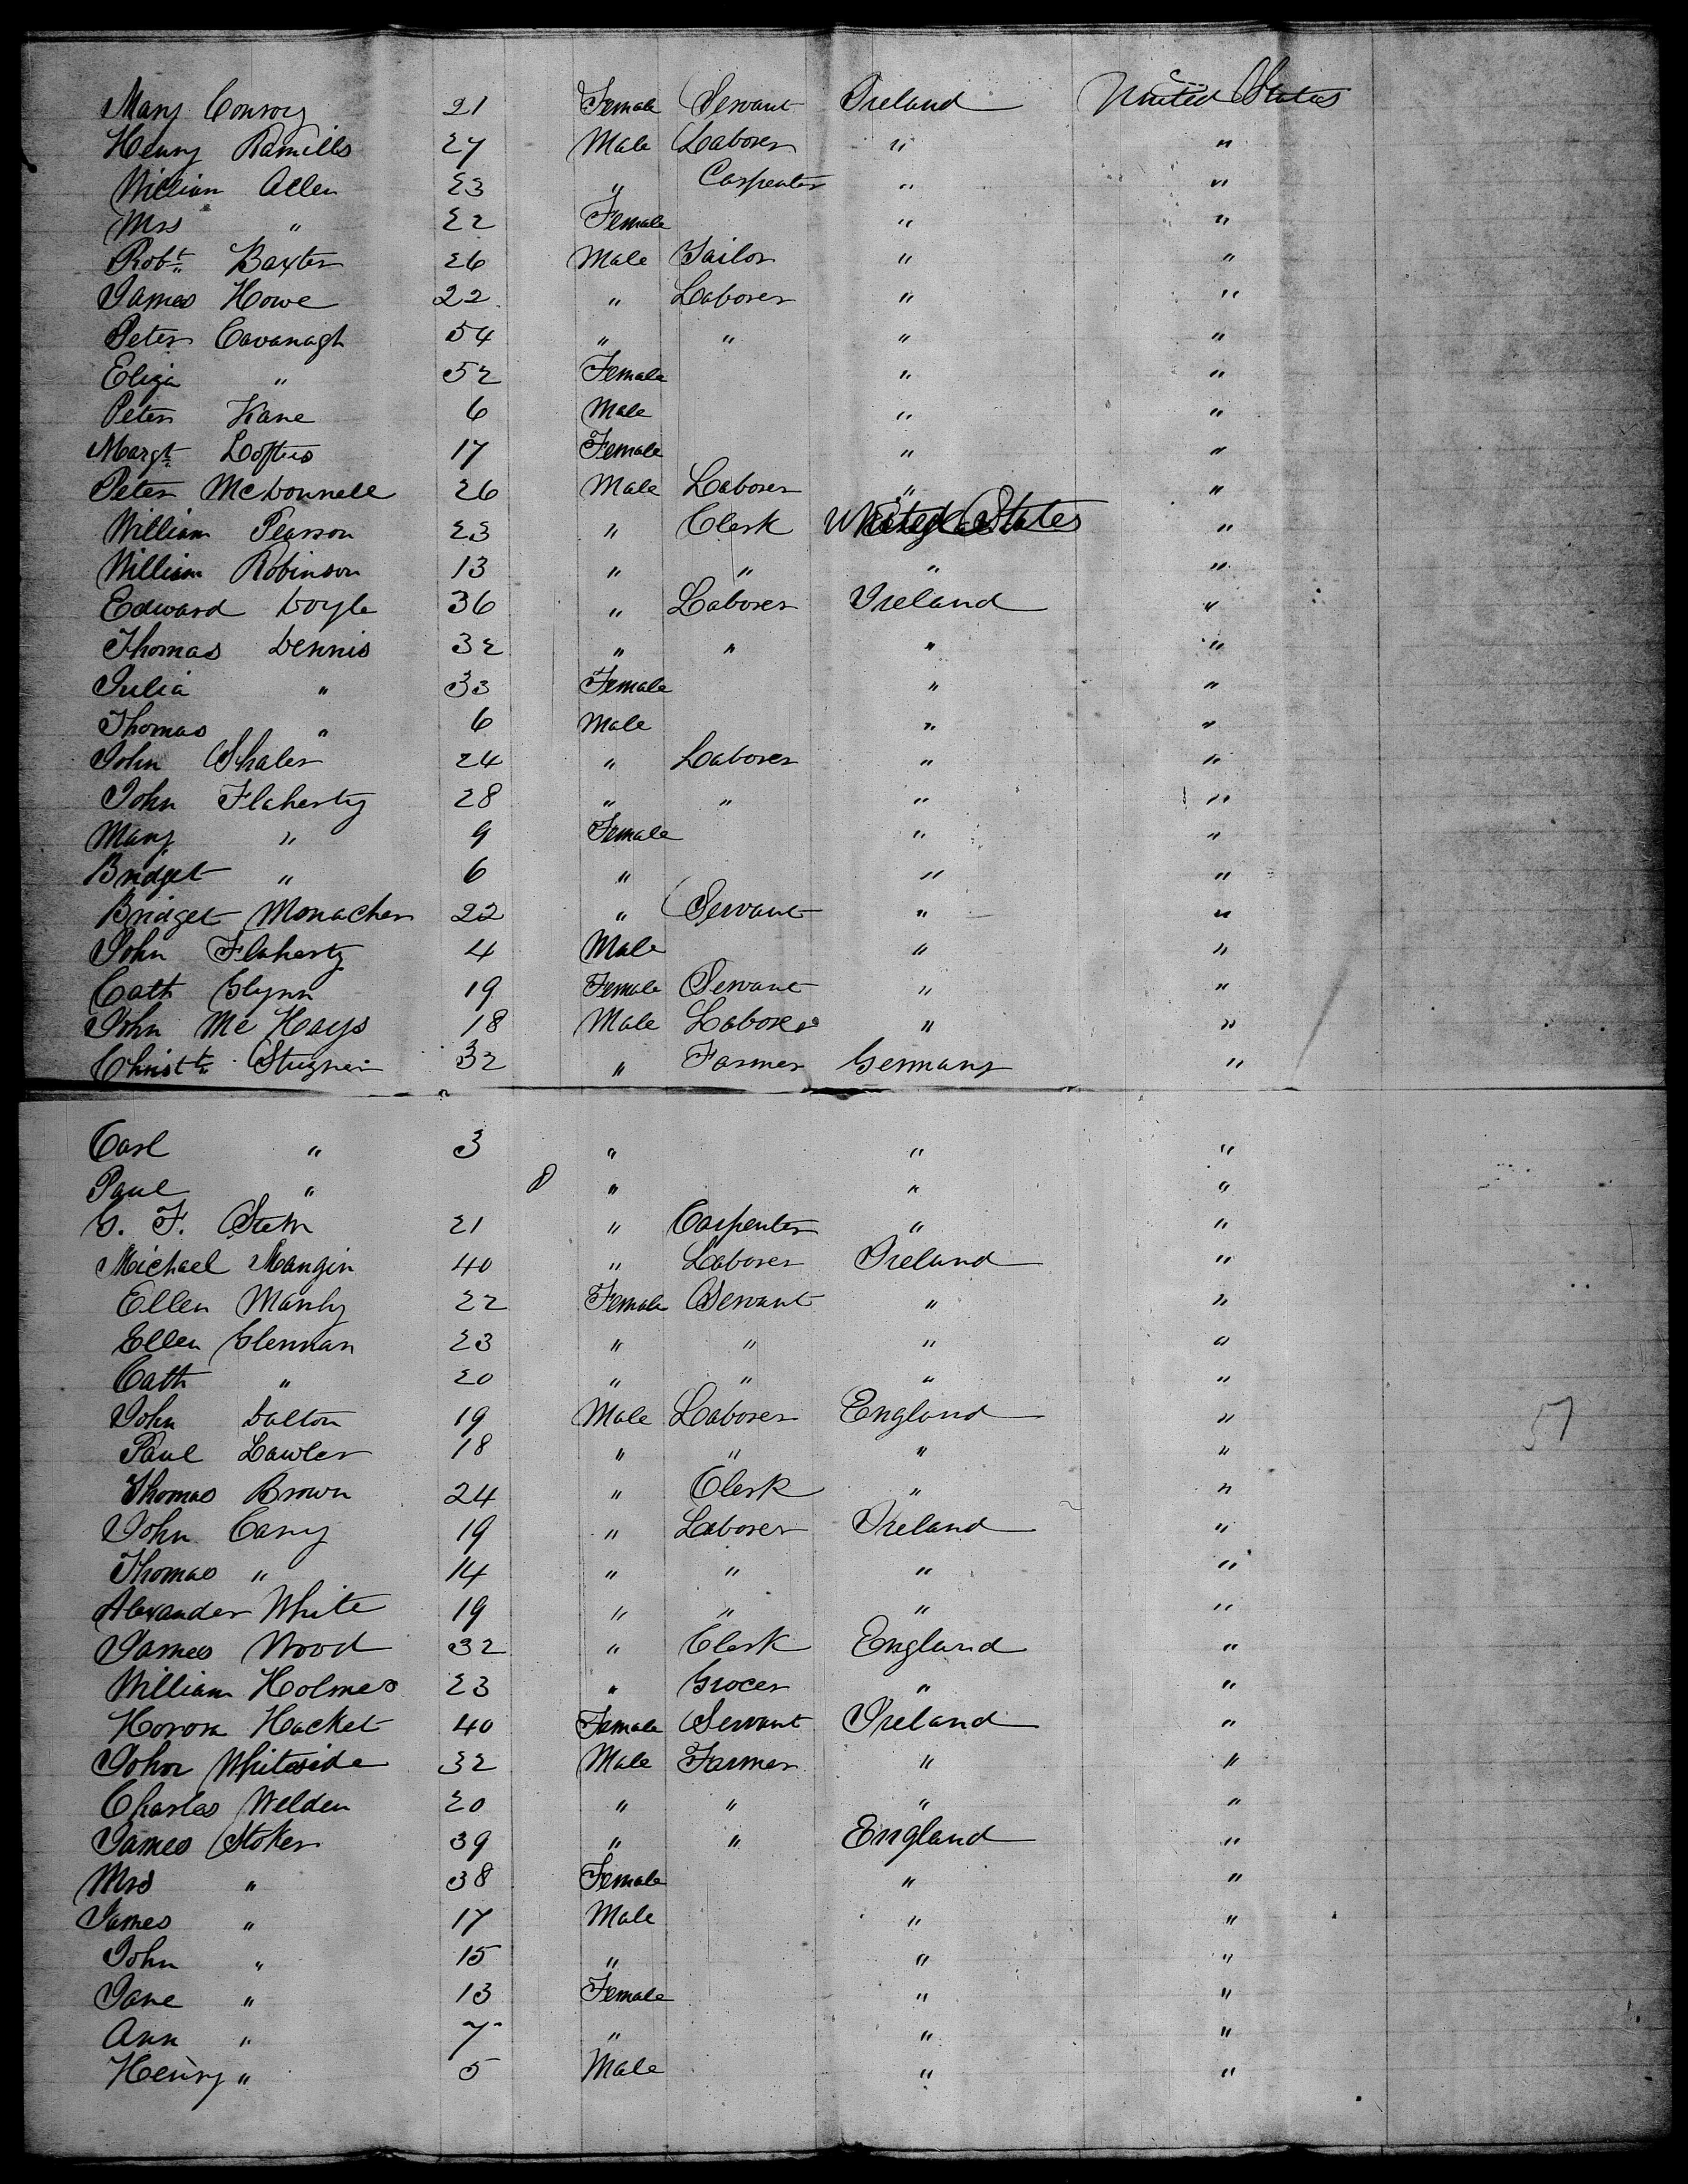 Mary Conroy 21 Female Servant Ireland United States
Henry Ramills 27 Male Laborer " "
William Allen 23 " Carpenter " "
Mrs " 22 Female " "
Robt Baxter 26 Male Tailor " "
James Howe 22 " Laborer " "
Peter Cavanagh 54 " " " "
Eliza " 52 Female " "
Peter Kane 6 Male " "
Margt Loftus 17 Female " "
Peter McDonnell 26 Male Laborer " "
William Pearson 23 " Clerk United States "
William Robinson 13 " " " "
Edward Doyle 36 " Laborer Ireland "
Thomas Dennis 32 " " " "
Julia " 33 Female " "
Thomas " 6 Male " "
John Shaler 24 " Laborer " "
John Flaherty 28 " " " "
Mary " 9 Female " "
Bridget " 6 " " "
Bridget Monacher 22 " Servant " "
John Flaherty 4 Male " "
Cath Glynn 19 Female Servant " "
John Mc Hays 18 Male Laborer " "
Christt 32 " Farmer Germany "
Carl " 3 " " "
Paul " " " "
G. F. 21 " Carpenter " "
Michael Mangin 40 " Laborer Ireland "
Ellen Manly 22 Female Servant " "
Ellen Glennan 23 " " " "
Cath " 20 " " " "
John Dalton 19 Male Laborer England "
Paul Lawler 18 " " " "
Thomas Brown 24 " Clerk " "
John Carry 19 " Laborer Ireland "
Thomas " 14 " " " "
Alexander White 19 " " " "
James Wood 32 " Clerk England "
William Holmes 23 " Grocer " "
Honora Hacket 40 Female Servant Ireland "
John Whiteside 32 Male Farmer " "
Charles Welden 20 " " " "
James Stoker 39 " " England "
Mrs " 38 Female " "
James " 17 Male " "
John " 15 " " "
Jane " 13 Female " "
Ann " 7 " " "
Henry " 5 Male " "
57